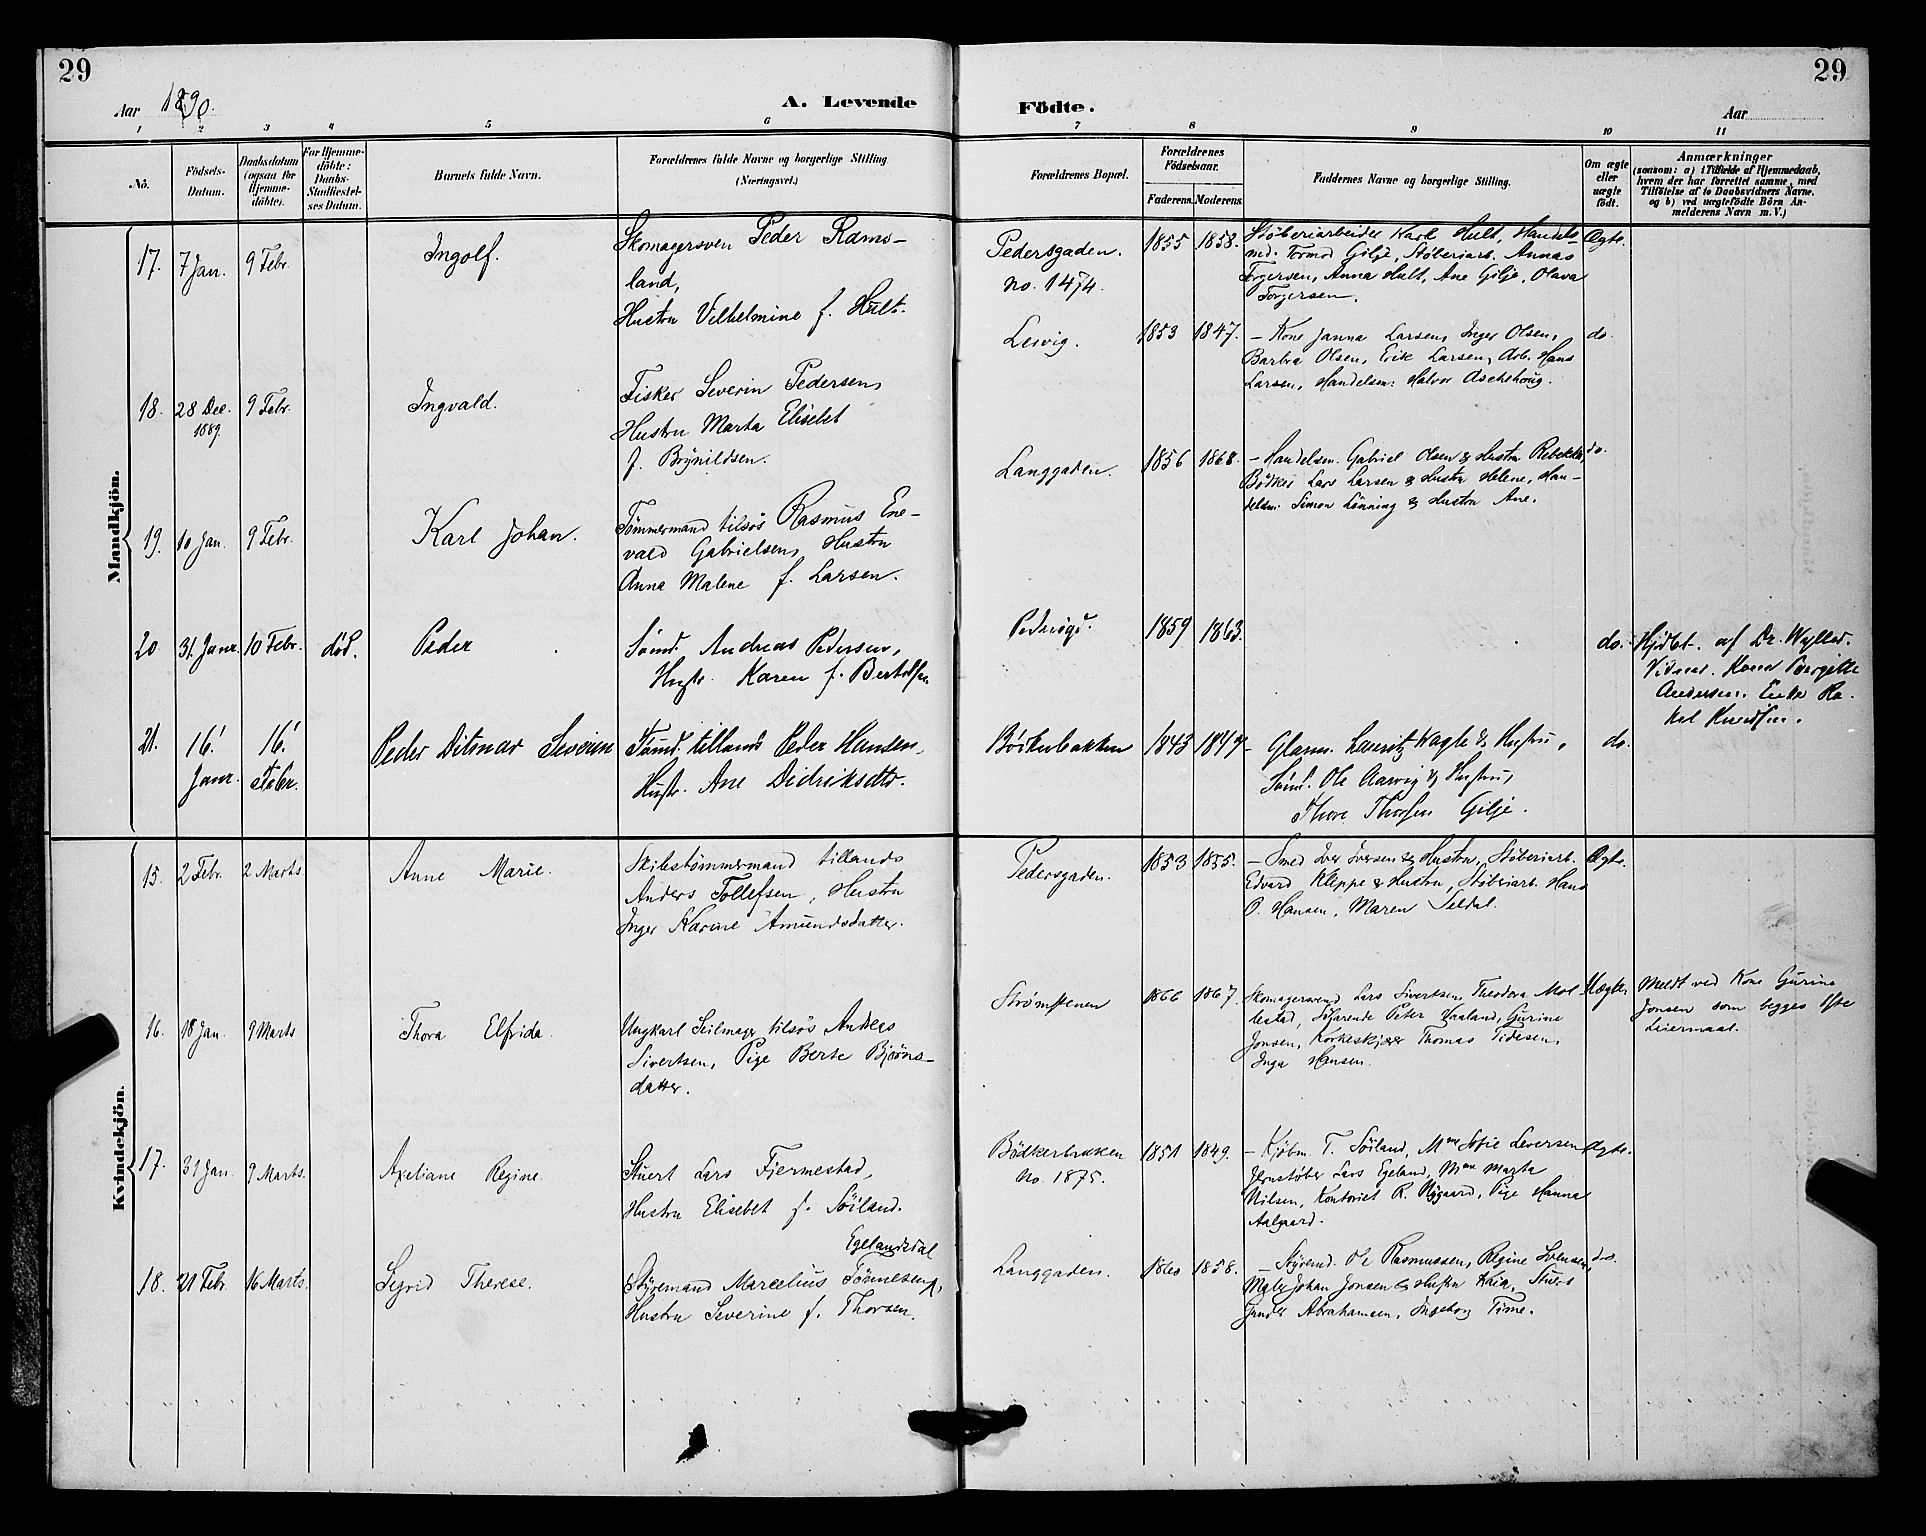 29
29
Aar 1890.
A. Levende
Födte.
Aar
1 2 3 4 5 6 7 8 9 10 11
Nö.
Födsels-
Datum.
Daabsdatum
(ogsaa for
Hjemme-
döbte).
For Hjemme-
döbte:
Daabs-
Stadfæstel-
ses Datum.
Barnets fulde Navn.
Forældrenes fulde Navne og borgerlige Stilling
(Næringsvei.)
Forældrenes Bopæl.
Forældrenes
Födselsaar.
Faderens. Moderens.
Faddernes Navne og borgerlige Stilling.
Om ægte
eller
uægte
født.
Anmærkninger
(saasom: a) i Tilfælde af Hjemmedaab,
hvem der har forrettet samme, med
Tilföielse af to Daabsvidners Navne.
og b) ved uægtefödte Börn An-
melderens Navn m. V.)
Mandkjön.
17. 7 Jan. 9 Febr. Ingolf.
Skomagersven Peder Rams-
land,
Hustru Vilhelmine f. Hult.
Pedersgaden.
No. 1474.
1855 1858.
Støberiarbeider Karl Hult, Handels-
md. Tormod Gilje, Støberiarb. Annas
Torgersen, Anna Hult, Ane Gilje, Olava
Torgersen.
Ægte.
18. 28 Dec. 9 Febr. Ingvald.
1889.
Fisker Severin Pedersen,
Hustru Marta Elisebet
f. Brynildsen.
Lervig.
1853 1847.
- Kone Janna Larsen, Inger Olsen,
Barbra Olsen, Erik Larsen, Arb. Hans
Larsen, Handelsm: Halvor Aschehoug.
do.
19. 10 Jan. 9 Febr. Karl Johan.
Tømmermand tilsøs Rasmus Ene-
vald Gabrielsen, Hustru
Anna Malene f. Larsen.
Langgaden.
1856 1868.
- Handelsm. Gabriel Olsen & Hustru Rebekka,
Bødker Lars Larsen & Hustru Helene, Han-
delsm: Simon Lønning & Hustru Ane.
do.
20 31 Janr. 10 Febr. død. Peder
Sømd. Andreas Pedersen,
Hustr. Karen f. Bertelsen
Pedersgd.
1859 1863.
do.
Hjdbt. af Dr. Wyller.
Vidner. Kone Bergitte
Andersen. Enke Ra-
kel Knudsen.
21. 16' 16' Peder Ditmar Severin
Janr. Febr.
Tømd. tillands Peder Hansen,
Hustr. Ane Didriksdtr.
1843 1849
- Glarm. Lauritz Wagle & Hustru,
Sømd. Ole Aarvig & Hustru,
Thore Thorsen Gilje.
do.
Kvindekjön.
15. 2 Febr. 2 Marts Anne Marie.
Skibstømmermand tillands
Anders Tollefsen, Hustru
Inger Karine Amundsdatter.
Pedersgaden.
1853 1855.
- Smed Iver Iversen & Hustru, Støberiarb.
Edvard Kleppe & Hustru, Støberiarb. Hans
O. Hansen, Maren Seldal.
Ægte.
16. 18 Jan. 9 Marts Thora Elfrida.
Ungkarl Seilmager tilsøs Andreas
Sivertsen, Pige Berte Bjørns-
datter.
Strømstenen
1866 1867.
Skomagersvend Lars Sivertsen, Theodora Mol-
lestad, Søfarende Peter Haaland, Gurine
Jonsen, Korkeskjærer Thomas Tidesen,
Inga Hansen.
Uægte.
Meldt ved Kone Gurine
Jonsen som begges 1ste
Leiermaal.
17. 31 Jan. 9 Marts. Axeliane Regine.
Stuert Lars Fjermestad,
Hustru Elisebet f. Söiland.
Bødkerbakken
No. 1875.
1851 1849.
- Kjøbm. T. Söiland, Mme Sofie Seversen
Jernstøber Lars Egeland, Mme Marta
Nilsen, Kontorist R. Nygaard, Pige Hanna
Aalgaard.
Ægte.
18. 21 Febr. 16 Marts. Sigrid Therese.
Egelandsdal
Styremand Marcelius Tönnesen,
Hustru Severine f. Thorsen.
Langgaden.
1860 1858.
- Styrmd. Ole Rasmussen, Regine Svensen,
Maler Johan Jonsen & Hustru Kaia, Stuert
Gunder Abrahamsen, Ingeborg Time.
do.